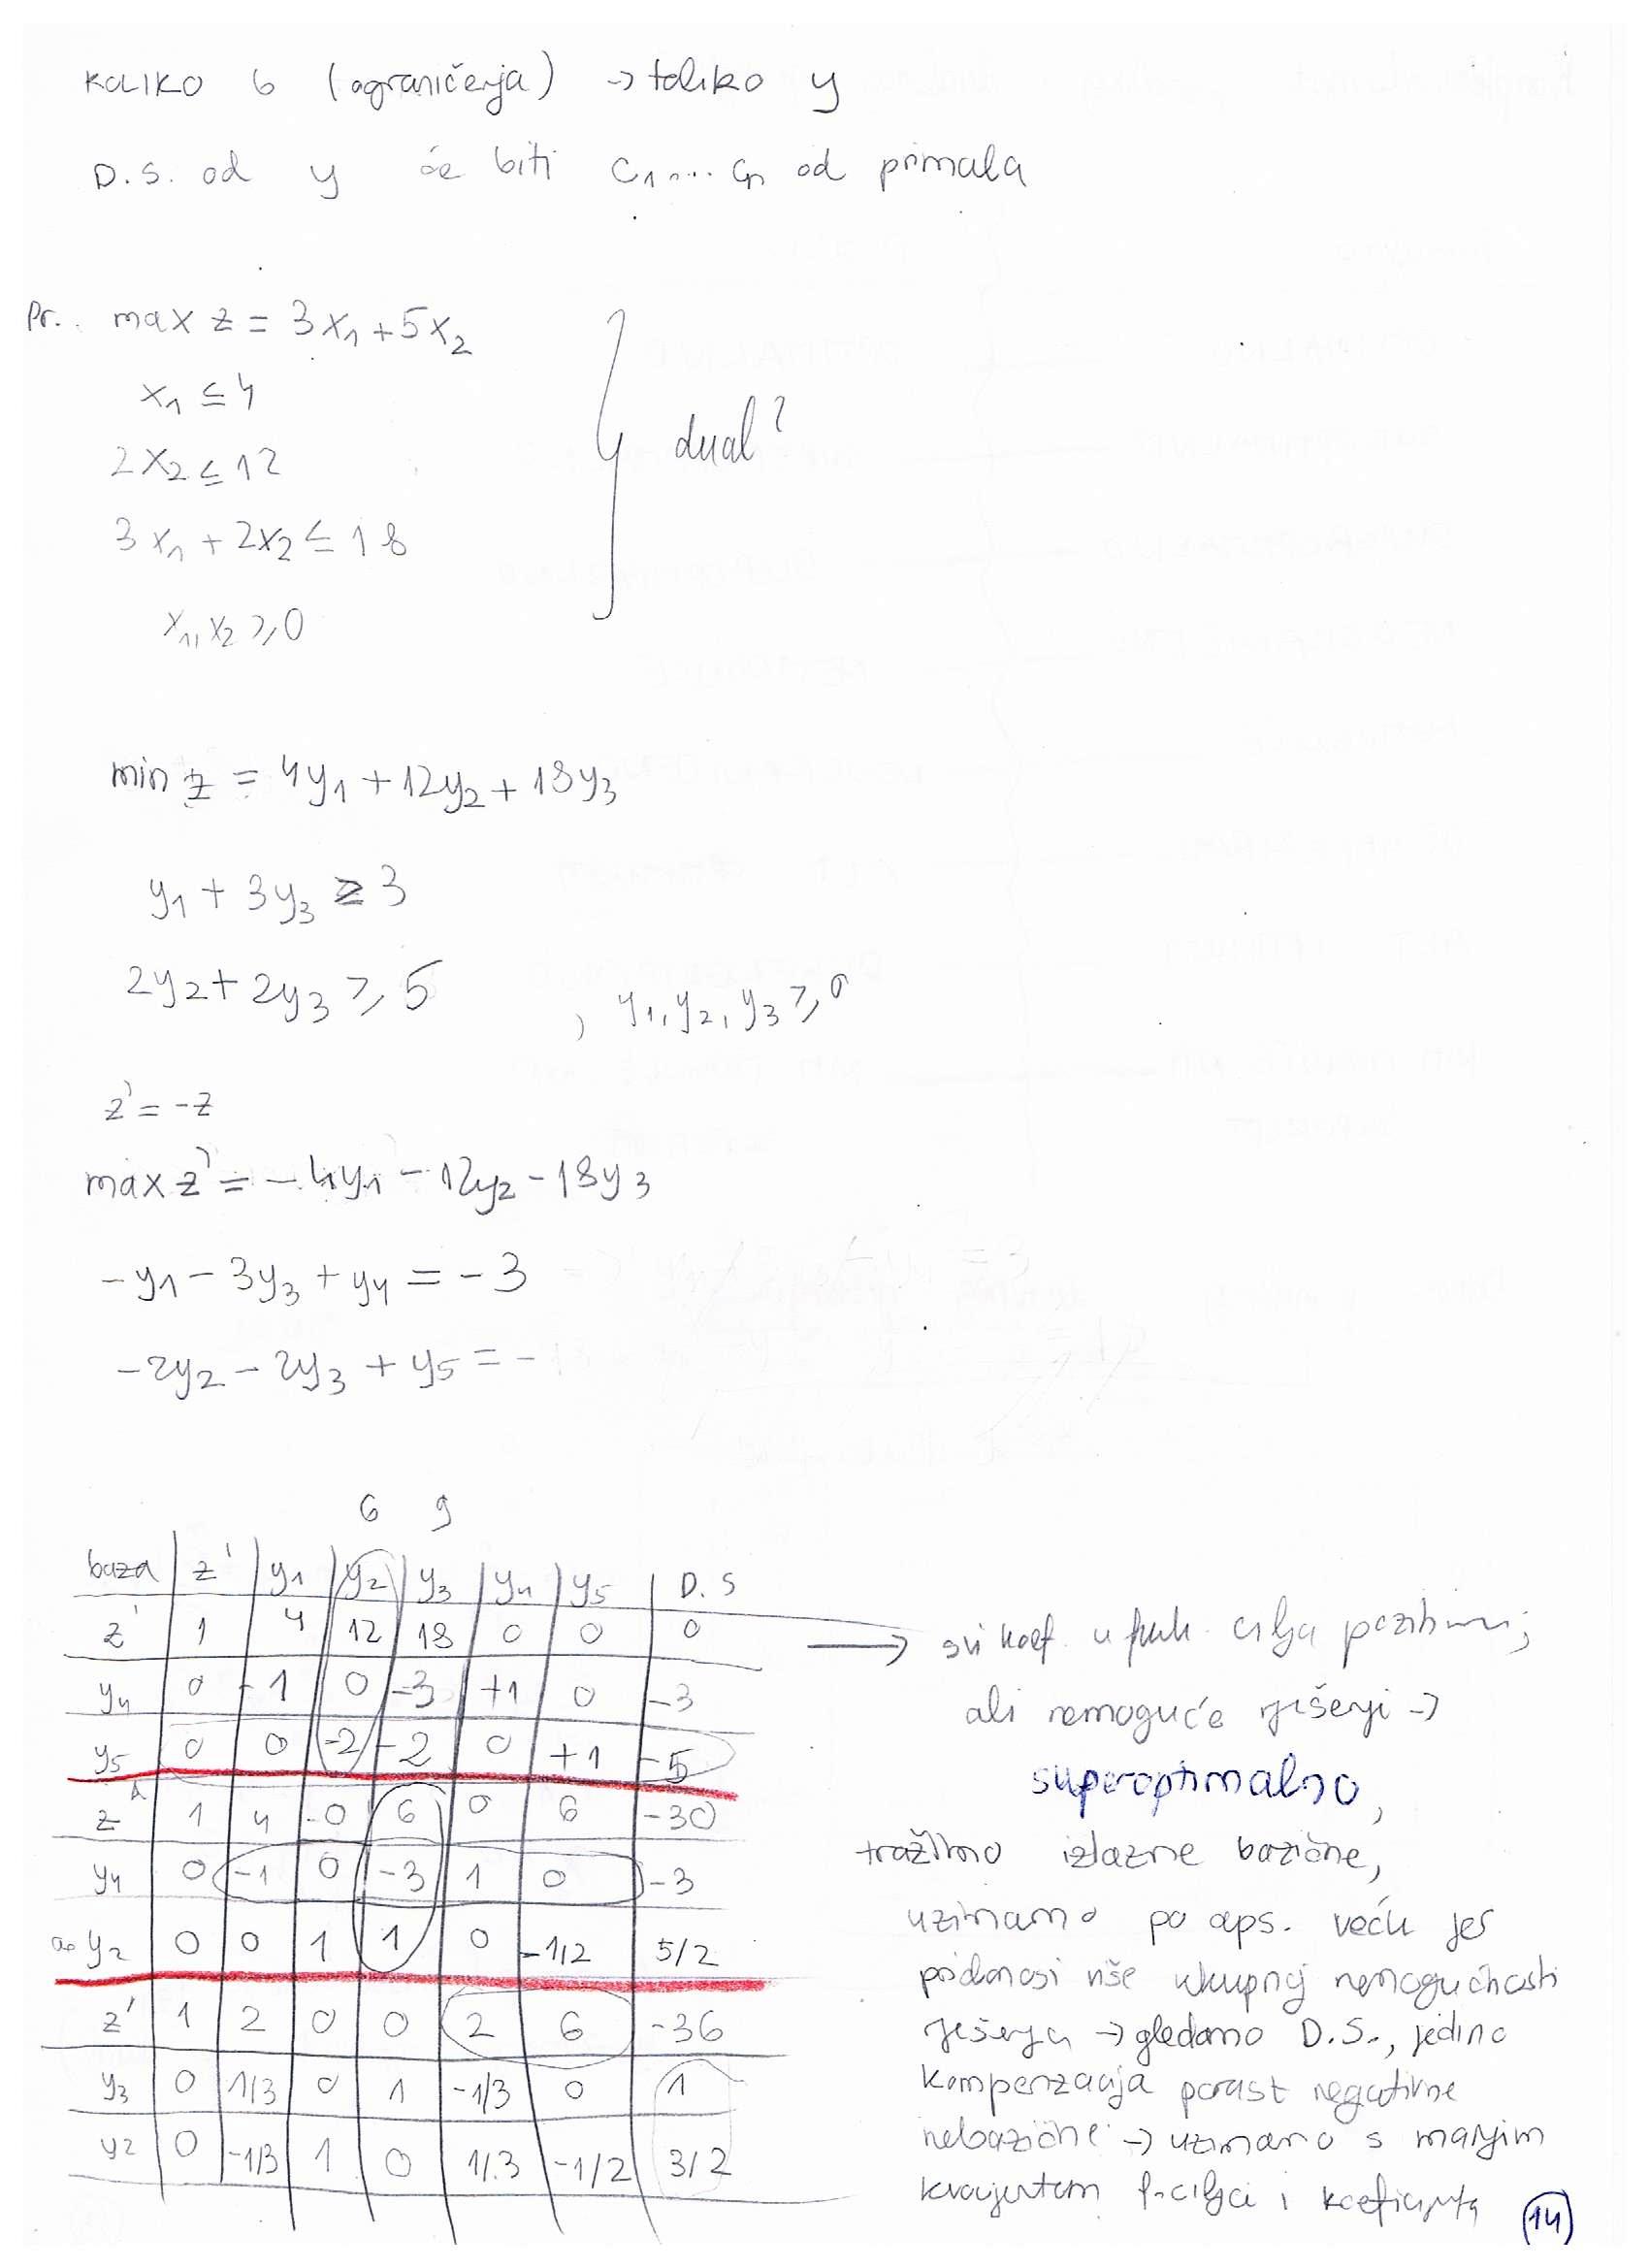 KOLIKO b (ograničenja) → toliko y
D.S. od y će biti c₁....cₙ od primala
Pr.. max z = 3x₁ + 5x₂
x₁ ≤ 4
2x₂ ≤ 12
3x₁ + 2x₂ ≤ 18
x₁, x₂ ≥ 0
} dual?
min z = 4y₁ + 12y₂ + 18y₃
y₁ + 3y₃ ≥ 3
2y₂ + 2y₃ ≥ 5 , y₁, y₂, y₃ ≥ 0
z' = -z
max z' = -4y₁ - 12y₂ - 18y₃
-y₁ - 3y₃ + y₄ = -3
-2y₂ - 2y₃ + y₅ = -
6 9
baza | z' | y₁ | y₂ | y₃ | y₄ | y₅ | D.S
z' | 1 | 4 | 12 | 18 | 0 | 0 | 0
y₄ | 0 | -1 | 0 | -3 | +1 | 0 | -3
y₅ | 0 | 0 | -2 | -2 | 0 | +1 | -5
z' | 1 | 4 | 0 | 6 | 0 | 6 | -30
y₄ | 0 | -1 | 0 | -3 | 1 | 0 | -3
y₂ | 0 | 0 | 1 | 1 | 0 | -1/2 | 5/2
z' | 1 | 2 | 0 | 0 | 2 | 6 | -36
y₃ | 0 | 1/3 | 0 | 1 | -1/3 | 0 | 1
y₂ | 0 | -1/3 | 1 | 0 | 1/3 | -1/2 | 3/2
→ svi koef. u funk. cilja pozitivni;
ali nemoguće rješenje →
superoptimalno,
tražimo izlazne bazične,
uzimamo po aps. veću jer
pridonosi više ukupnoj nemogućnosti
rješenja → gledamo D.S., jedina
kompenzacija porast negativne
nebazične → uzimamo s manjim
kvocijentom f-cilja i koeficijenta
14